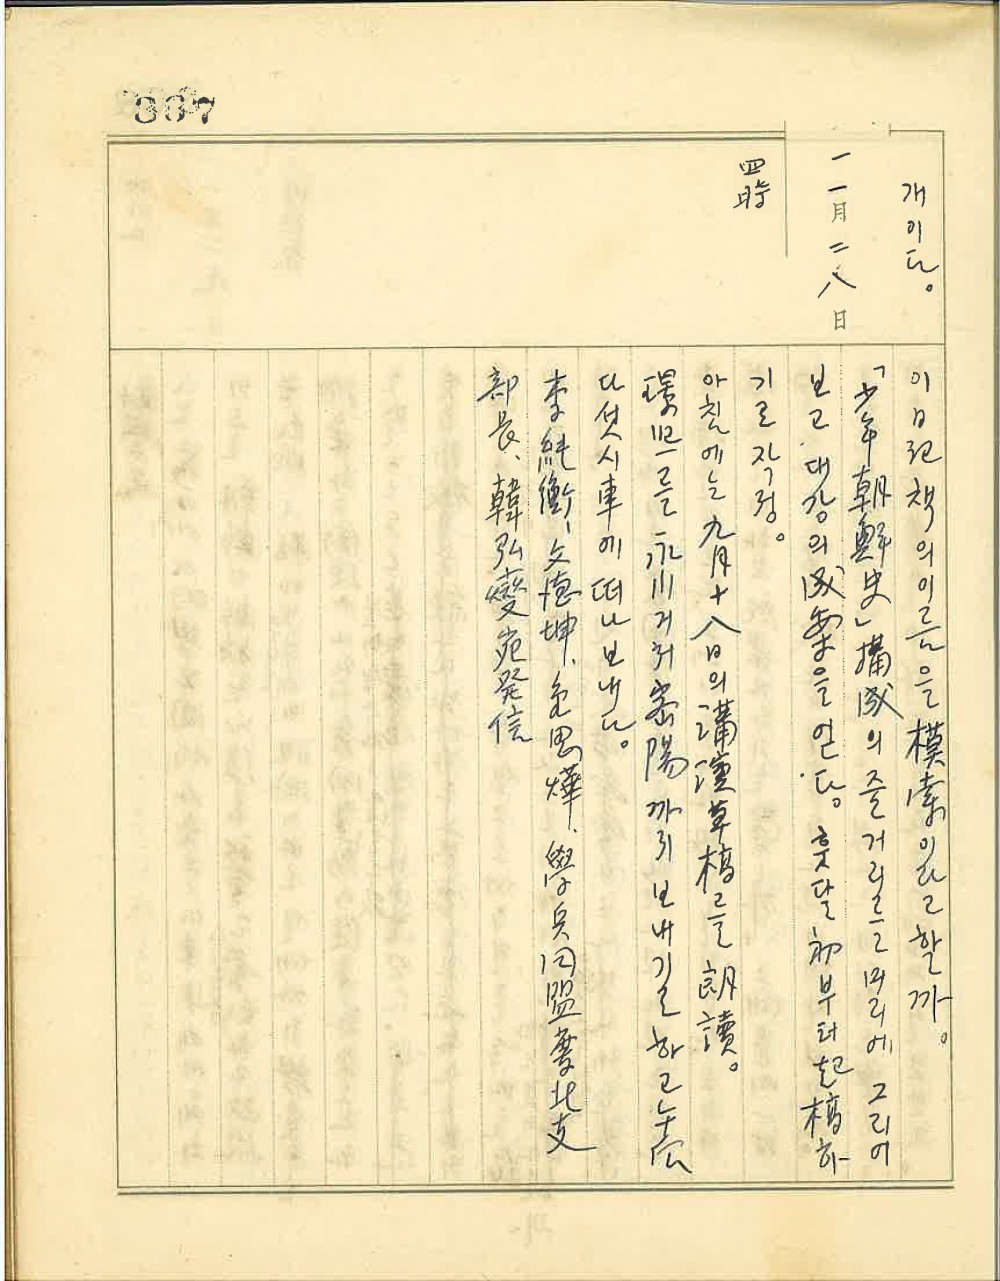 367
개이다。
一一月二八日
四時
이日記책의이름을模索이라고할까。
「少年朝鮮史」構成의줄거리를머리에그리어
보고대강의成案을얻다。훗달初부터起稿하
기로작정。
아침에는九月十八日의講演草稿를朗讀。
璟ированн를永川거쳐密陽까지보내기로하고午后
다섯시車에떠나보내다。
李純衡、文德坤、兪思燁、學兵同盟慶北支
部長、韓弘燮宛発信